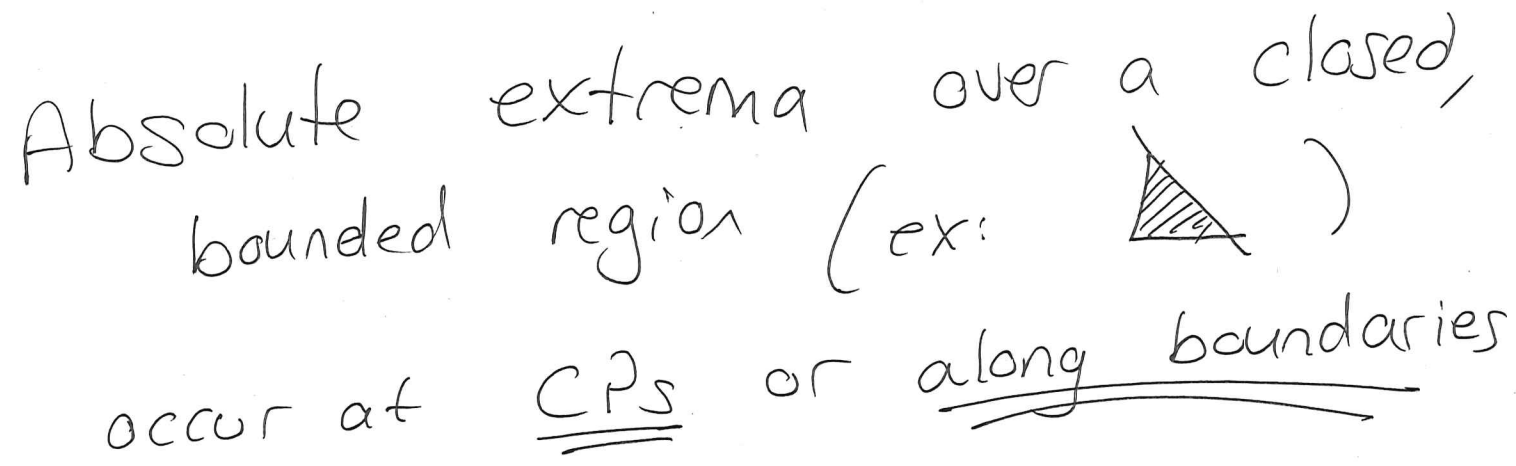 Absolute extrema over a closed,
bounded region (ex: )
occur at CPs or along boundaries